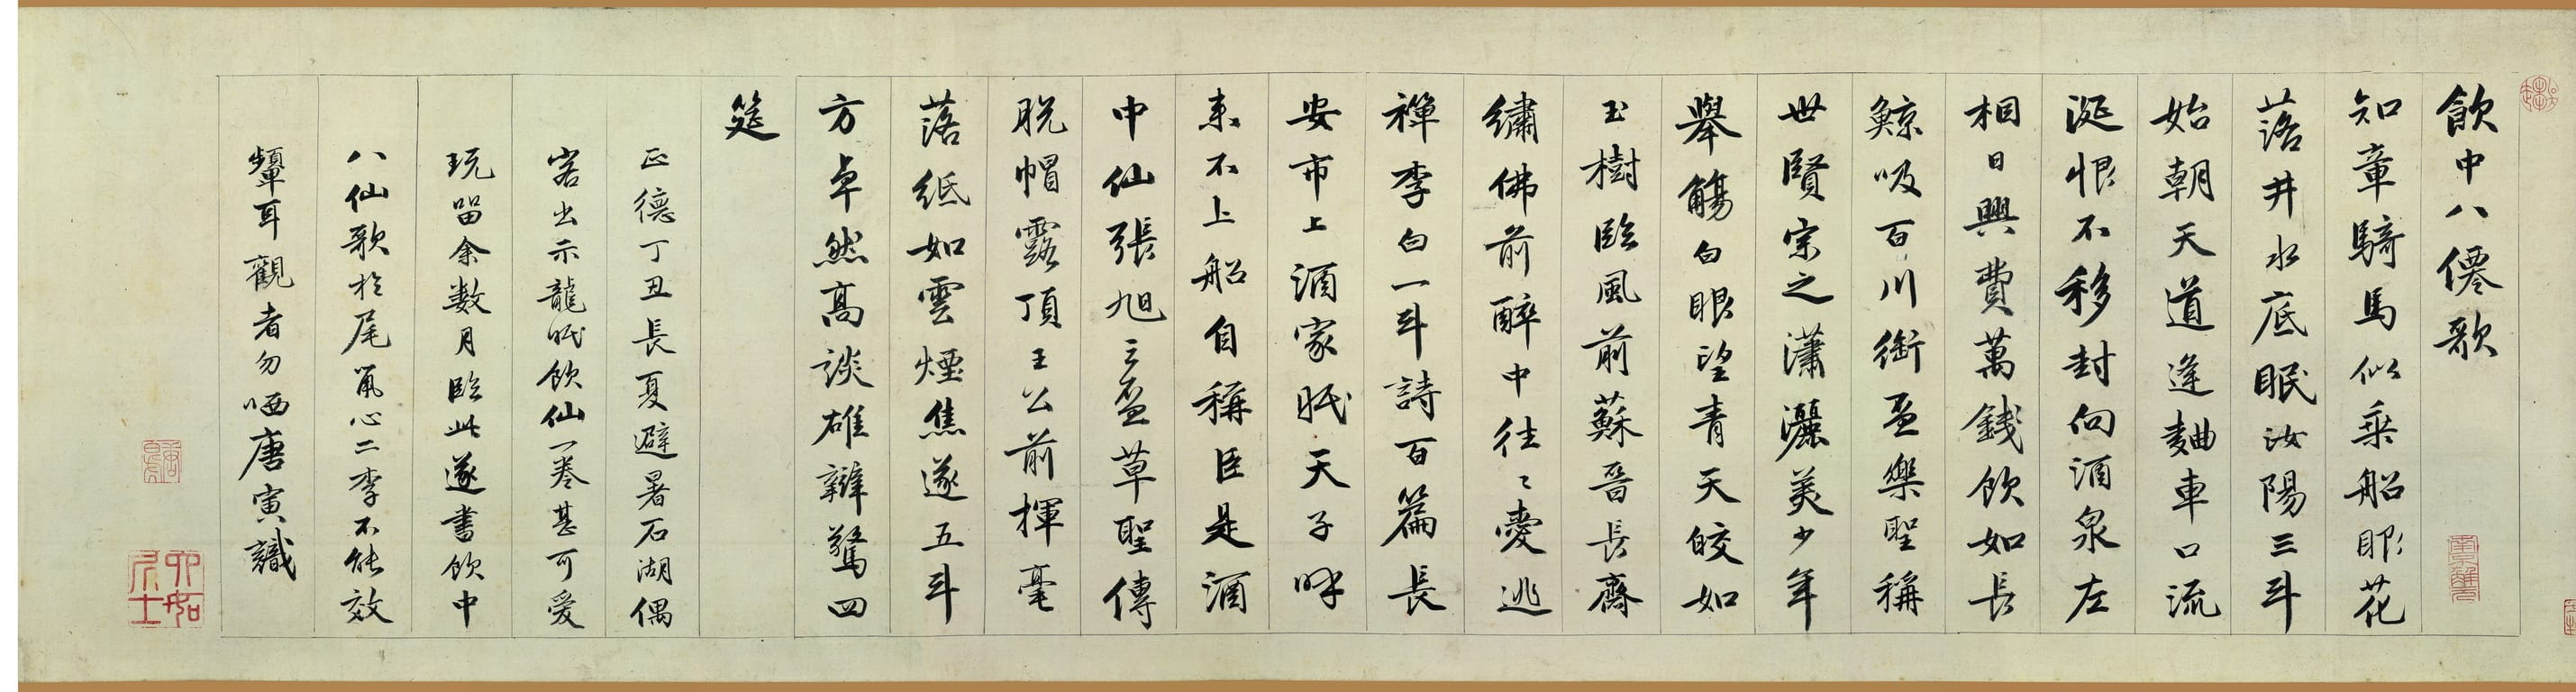 飲中八僊歌
知章騎馬似乘船眼花
落井水底眠汝陽三斗
始朝天道逢麯車口流
涎恨不移封向酒泉左
相日興費萬錢飲如長
鯨吸百川銜盃樂聖稱
世賢宗之瀟灑美少年
舉觴白眼望青天皎如
玉樹臨風前蘇晉長齋
繡佛前醉中往〻愛逃
禪李白一斗詩百篇長
安市上酒家眠天子呼
來不上船自稱臣是酒
中仙張旭三盃草聖傳
脫帽露頂王公前揮毫
落紙如雲煙焦遂五斗
方卓然高談雄辯驚四
筵
正德丁丑長夏避暑石湖偶
客出示龍眠飲仙一卷甚可愛
玩留余數月臨此遂書飲中
八仙歌於尾心二李不能效
顰耳觀者勿哂唐寅識
六如居士